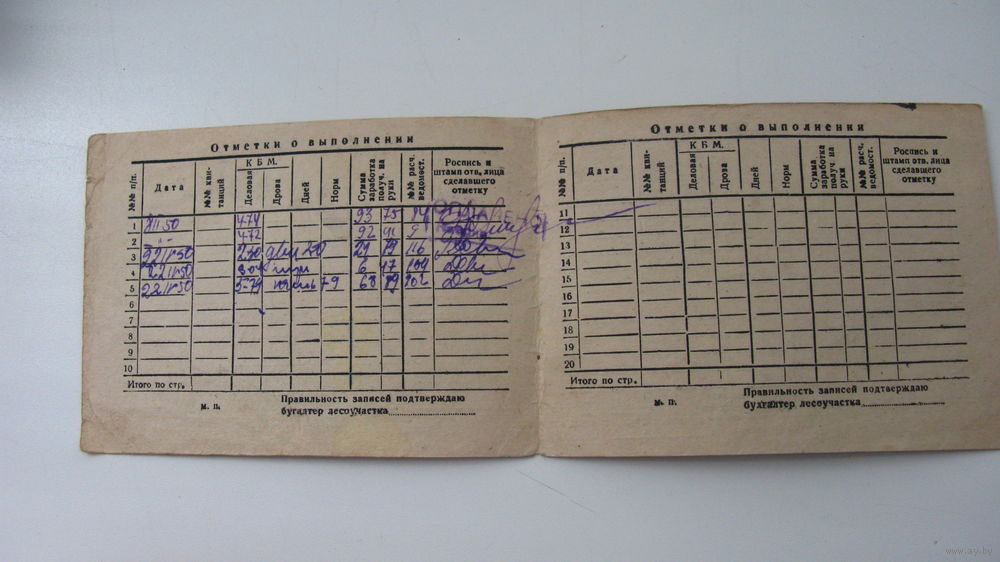 Отметки о выполнении
№№ п/п.
Дата
№№ кви-
танций
К Б М.
Деловая
Дрова
Дней
Норм
Сумма
заработка
получ. на
руки
№№ расч.
ведомост.
Роспись и
штамп отв. лица
сделавшего
отметку
1
474
93 75
2
472
92 41 9
3
29 79 116
4
6 47
5
68
6
7
8
9
10
Итого по стр.
м. п.
Правильность записей подтверждаю
бугалтер лесоучастка
Отметки о выполнении
№№ п/п.
Дата
№№ кви-
танций
К Б М.
Деловая
Дрова
Дней
Норм
Сумма
заработка
получ на
руки
№№ расч,
ведомост.
Роспись и
штамп отв, лица
сделавшего
отметку
11
12
13
14
15
16
17
18
19
20
Итого по стр.
м. п.
Правильность записей подтверждаю
бугалтер лесоучастка
www.ay.by